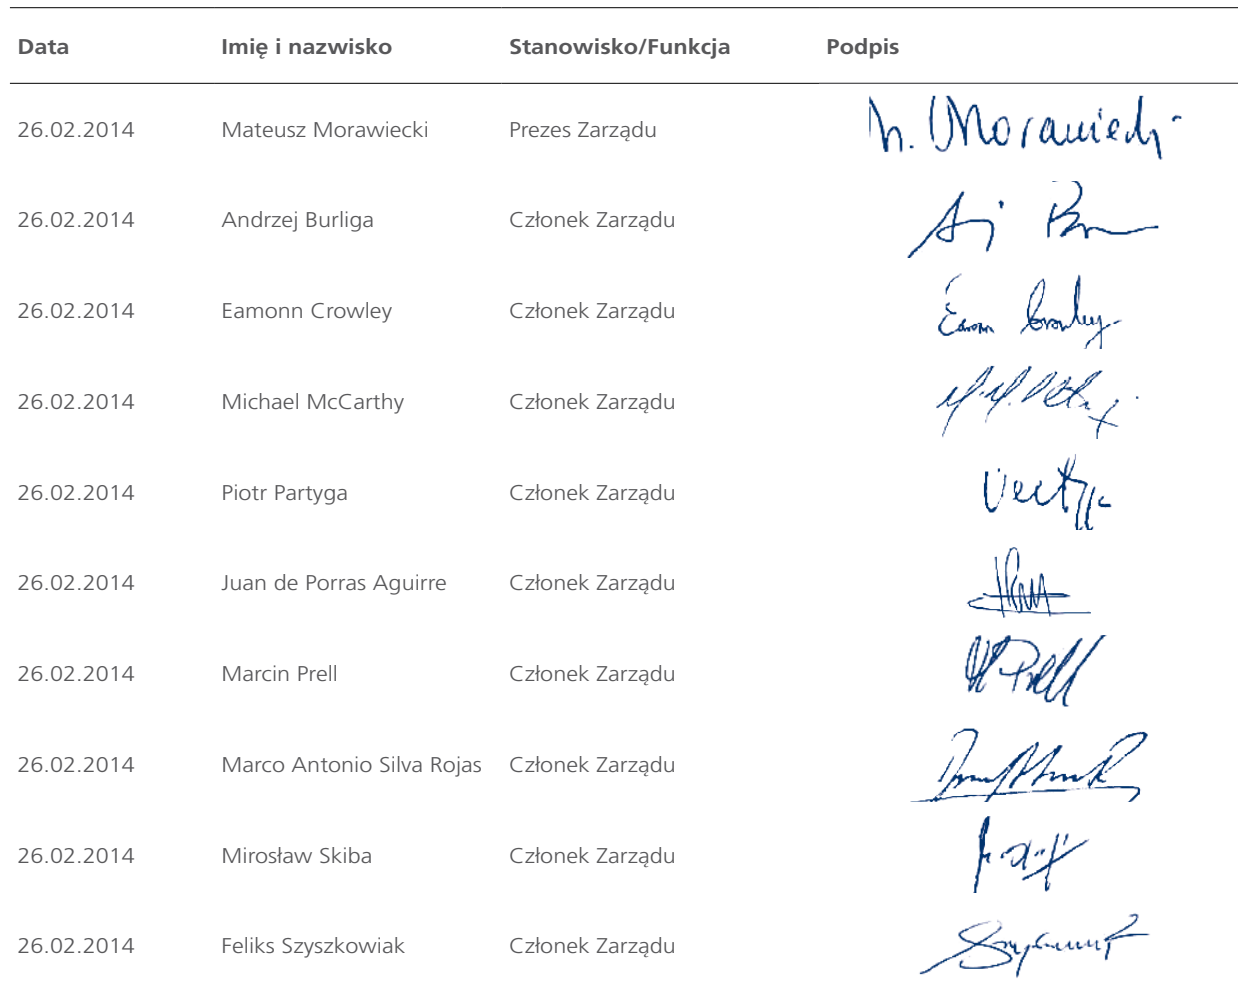 Data Imię i nazwisko Stanowisko/Funkcja Podpis
26.02.2014 Mateusz Morawiecki Prezes Zarządu M. Morawiecki
26.02.2014 Andrzej Burliga Członek Zarządu
26.02.2014 Eamonn Crowley Członek Zarządu Eamonn Crowley
26.02.2014 Michael McCarthy Członek Zarządu
26.02.2014 Piotr Partyga Członek Zarządu
26.02.2014 Juan de Porras Aguirre Członek Zarządu
26.02.2014 Marcin Prell Członek Zarządu M Prell
26.02.2014 Marco Antonio Silva Rojas Członek Zarządu
26.02.2014 Mirosław Skiba Członek Zarządu
26.02.2014 Feliks Szyszkowiak Członek Zarządu